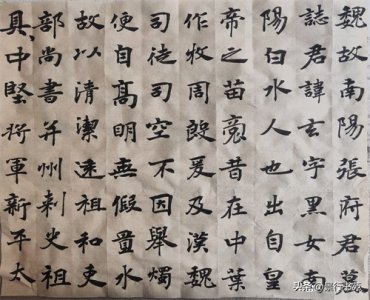 魏故南陽張府君墓
誌君諱玄字黑女南
陽白水人也出自皇
帝之苗裔昔在中葉
作牧周殷爰及漢魏
司徒司空不因舉燭
便自高明無假置水
故以清潔遠祖和吏
部尚書并州刾史祖
具中堅將軍新平太
头条